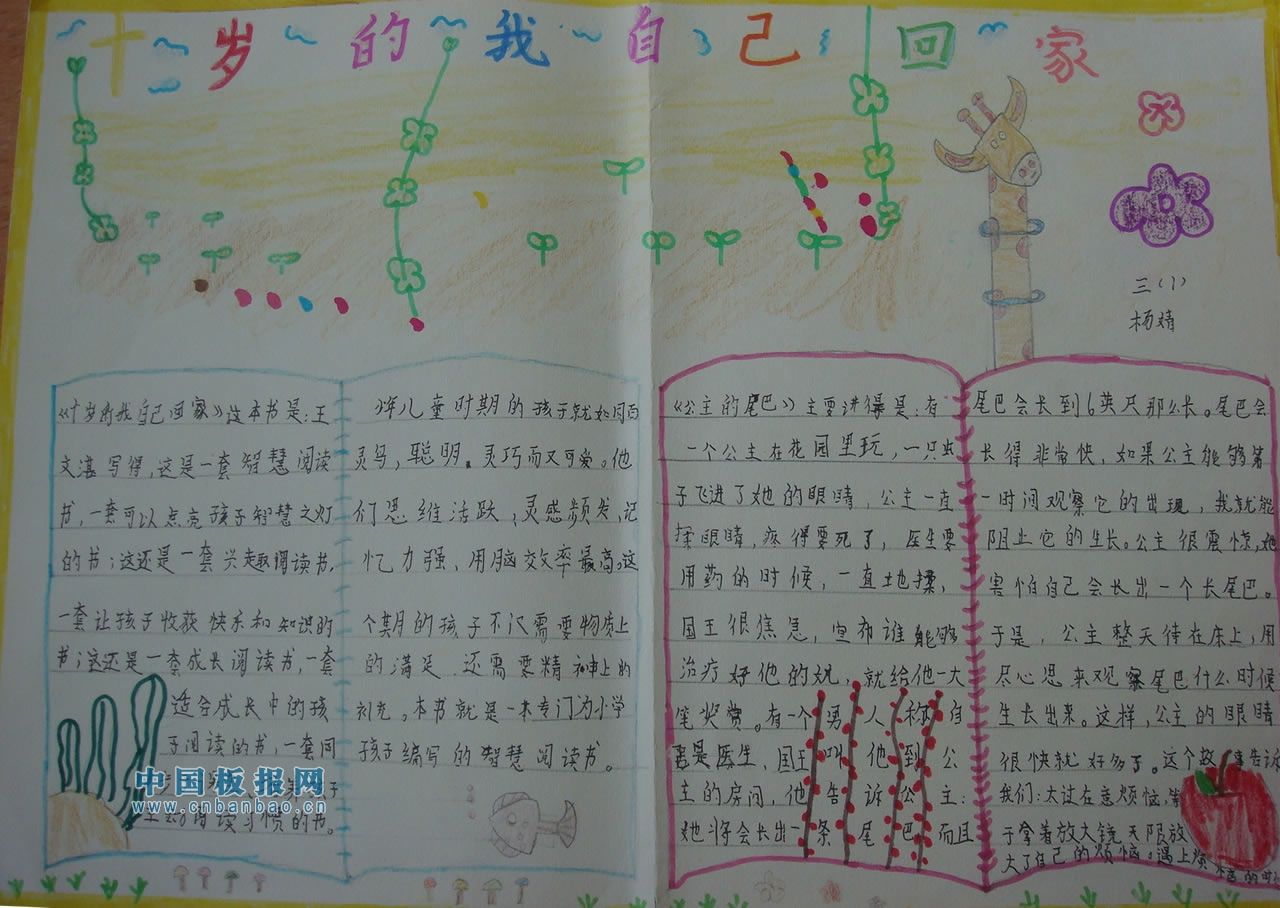 十岁的我自己回家
三(1)
杨婧
《十岁的我自己回家》这本书是:王
文湛写得,这是一套智慧阅读
书,一套可以点亮孩子智慧之灯
的书;这还是一套兴趣阅读书,
一套让孩子收获快乐和知识的
书;这还是一套成长阅读书,一套
适合成长中的孩
子阅读的书,一套同
阅读习惯的书。
少年儿童时期的孩子就如同百
灵鸟,聪明。灵巧而又可爱。他
们思维活跃,灵感频发,记
忆力强,用脑效率最高。这
个期的孩子不仅需要物质上
的满足.还需要精神上的
补充。本书就是一本专门为小学
孩子编写的智慧阅读书。
《公主的尾巴》主要讲得是:有
一个公主在花园里玩,一只虫
子飞进了她的眼睛,公主一直
揉眼睛,疼得要死了,医生要
用药的时候,一直地揉,
国王很焦急,宣布谁能够
治疗好他的,就给他一大
笔奖赏。有一个男人称自
己是医生,国王叫他到公
主的房间,他告诉公主:
她将会长出一条尾巴而且
尾巴会长到6英尺那么长。尾巴会
长得非常快,如果公主能够第
一时间观察它的出现,我就能
阻止它的生长。公主很震惊,她
害怕自己会长出一个长尾巴。
于是,公主整天待在床上,用
尽心思来观察尾巴什么时候
生长出来。这样,公主的眼睛
很快就好多了。这个故事告诉
我们:太过在意烦恼,等
于拿着放大镜无限放
大了自己的烦恼。遇上烦恼的时
中国板报网
www.cnbanbao.cn